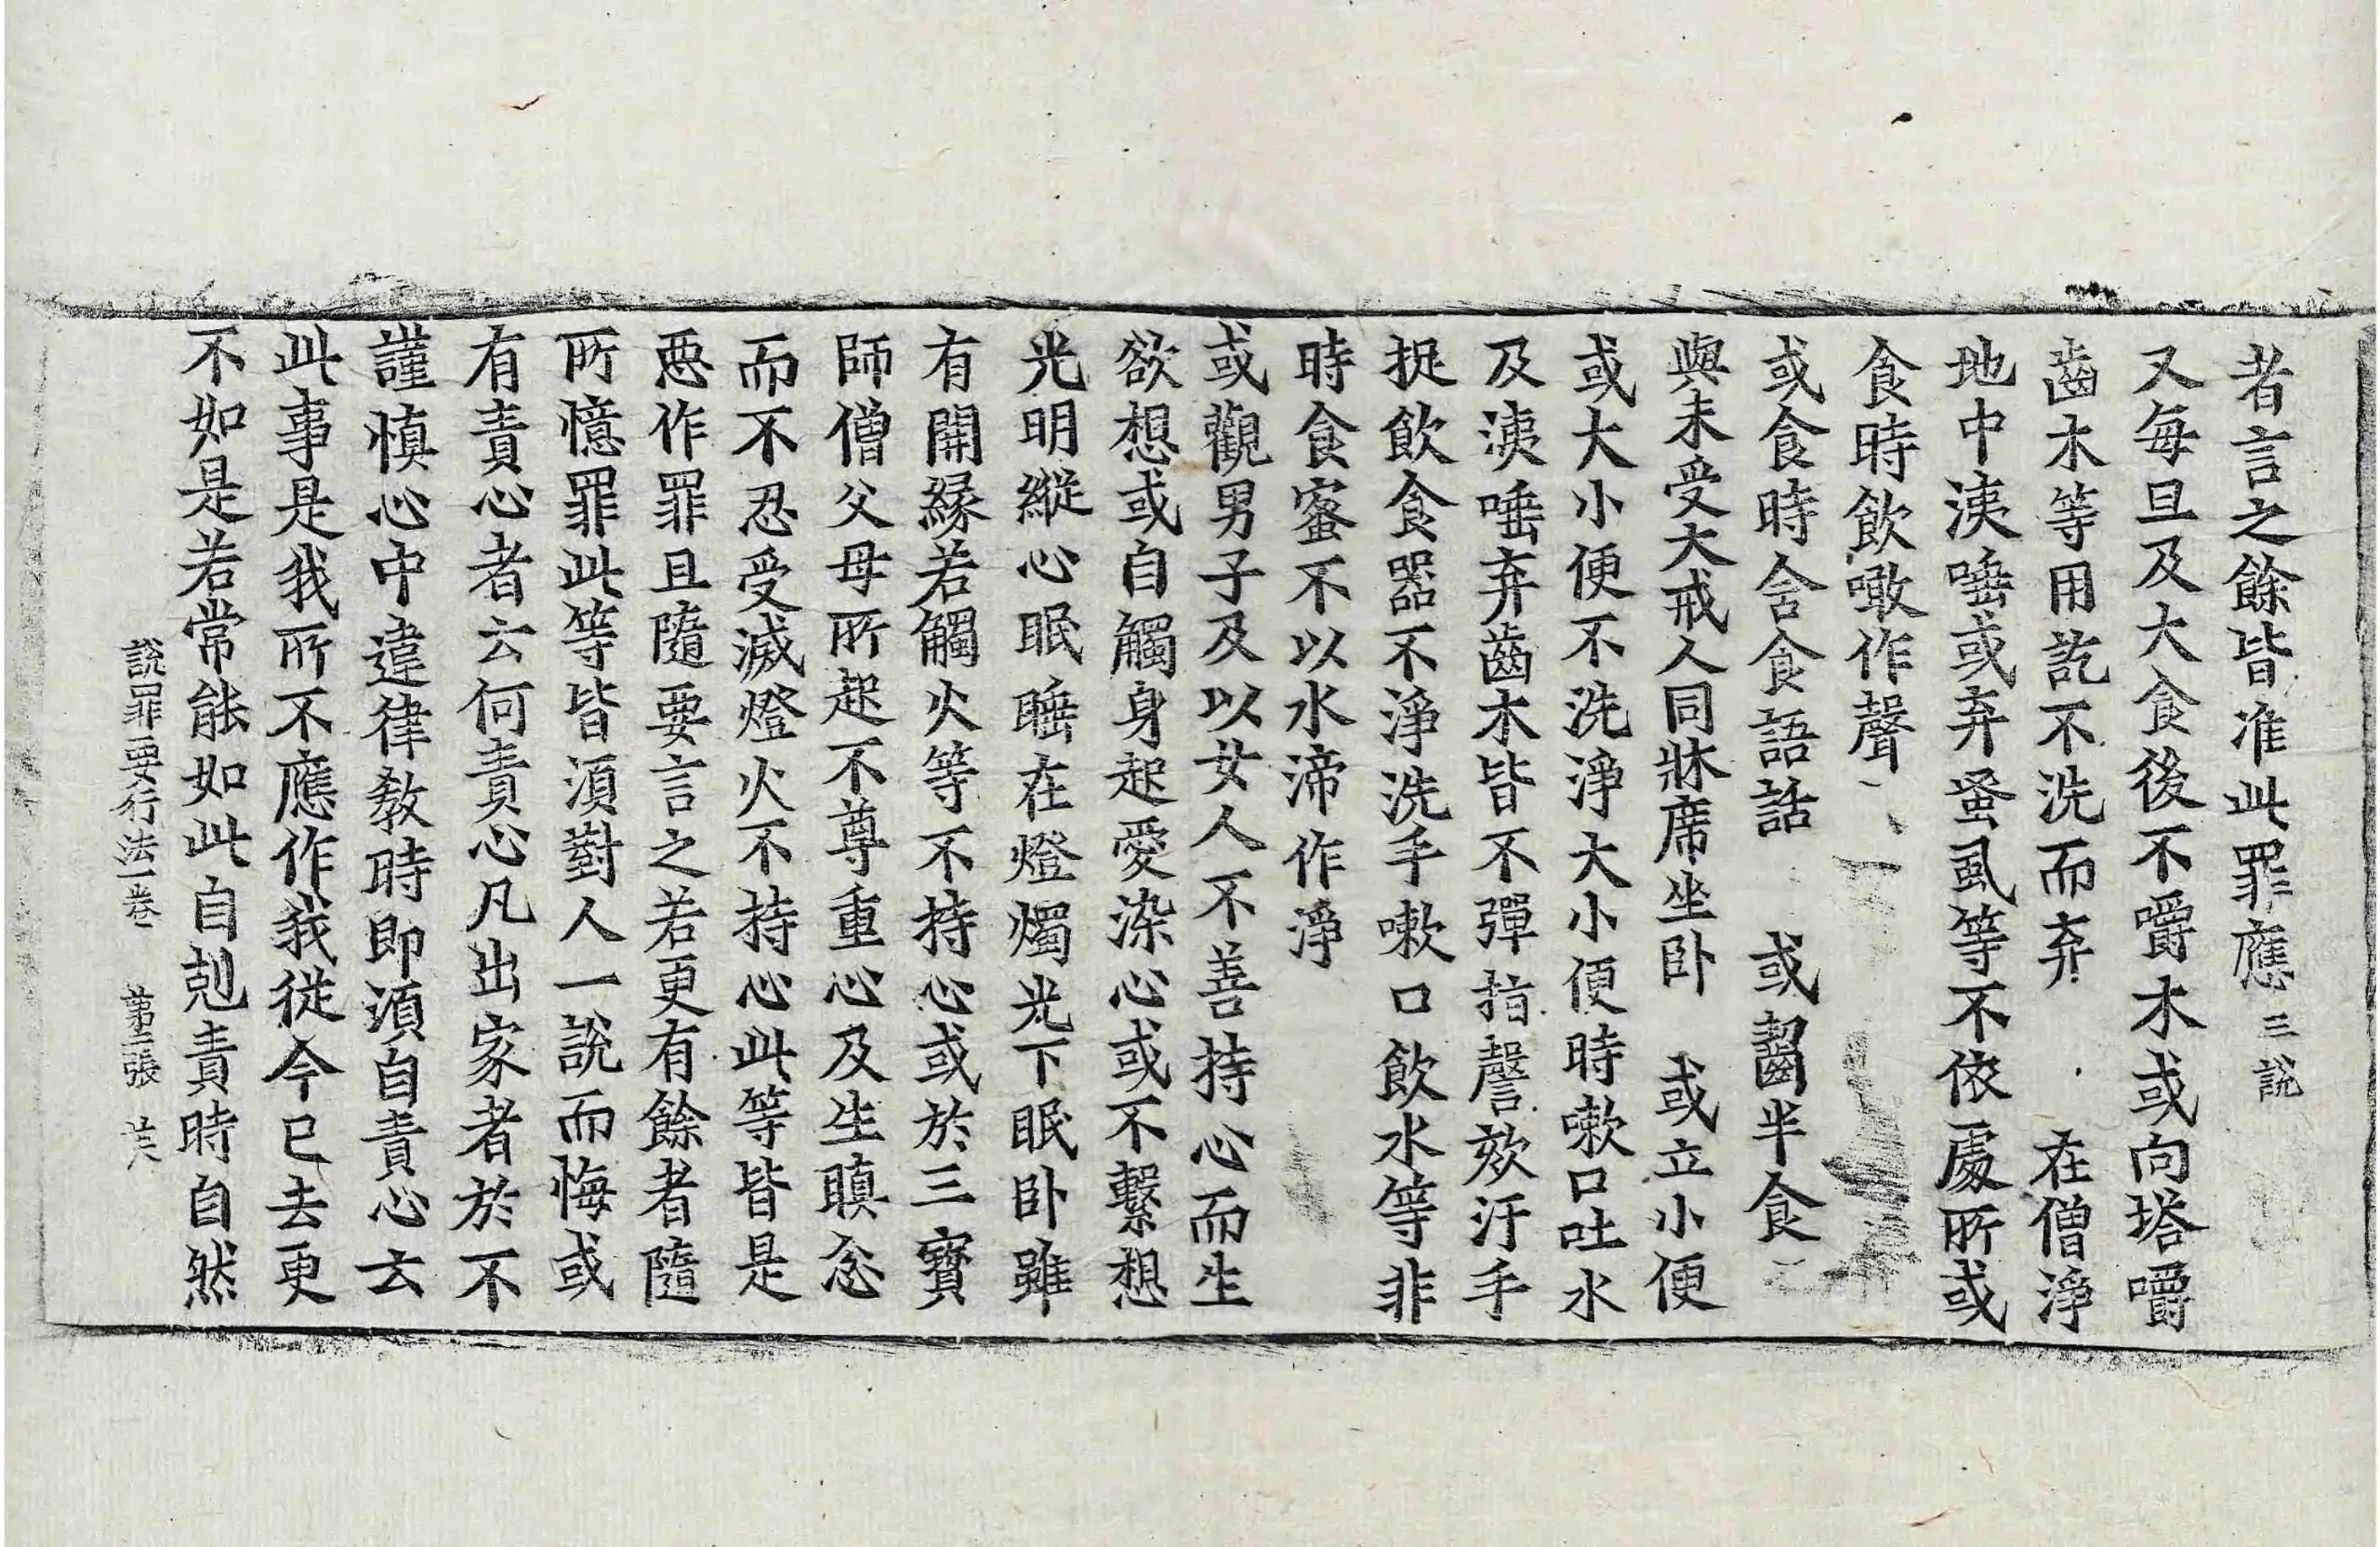 者言之餘皆准此罪應三說
又每旦及大食後不嚼木或向塔嚼
齒木等用訖不洗而弃 在僧淨
地中洟唾或弃蚤虱等不依處所或
食時飲噉作聲
或食時含食語話 或齧半食
與未受大戒人同牀席坐卧 或立小便
或大小便不洗淨大小便時嗽口吐水
及洟唾弃齒木皆不彈指謦欬汙手
捉飲食器不淨洗手嗽口飲水等非
時食蜜不以水渧作淨
或觀男子及以女人不善持心而生
欲想或自觸身起愛染心或不繫想
光明縱心眠睡在燈燭光下眠卧雖
有開緣若觸火等不持心或於三寶
師僧父母所起不尊重心及生瞋忿
而不忍受滅燈火不持心此等皆是
惡作罪且隨要言之若更有餘者隨
所憶罪此等皆須對人一說而悔或
有責心者云何責心凡出家者於不
謹慎心中違律教時即須自責心云
此事是我所不應作我從今已去更
不如是若常能如此自剋責時自然
說罪要行法一卷 第二張